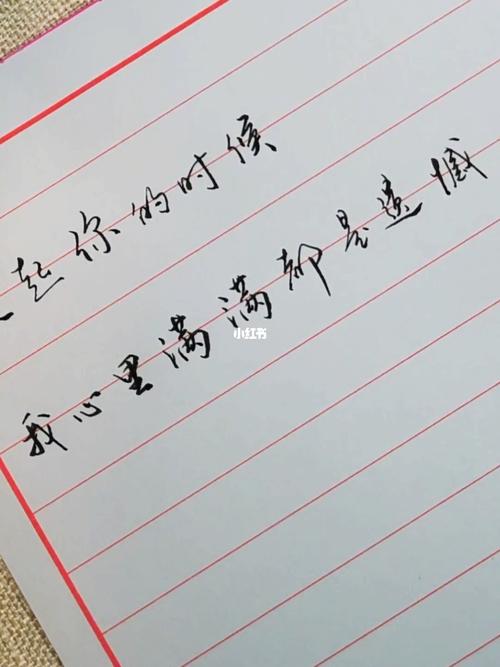 起你的时候
我心里满满都是遗憾
小红书